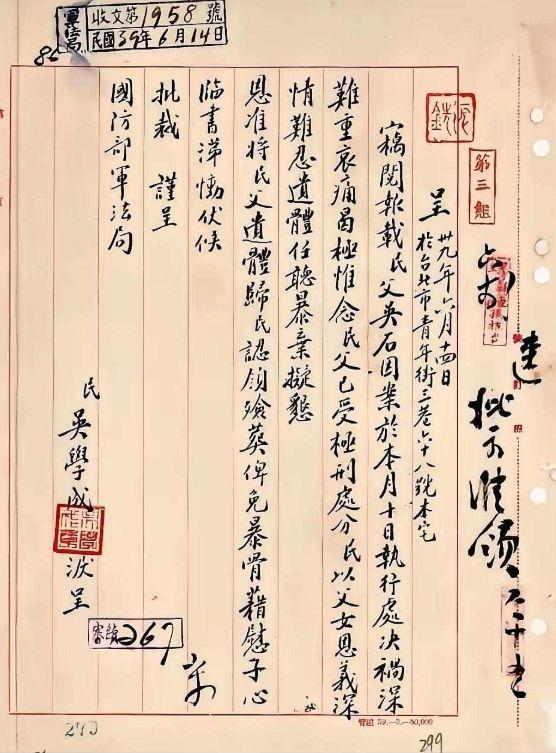 軍法局
收文第1958號
民國39年6月14日
86
第三組
速
批示准領
呈
卅九年六月十四日
於台北市青年街三巷六十八號本宅
竊閱報載民父吳石因業於本月十日執行處決禍深
難重哀痛曷極惟念民父已受極刑處分民以父女恩義深
情難忍遺體任聽暴棄擬懇
恩准將民父遺體歸民認領殮葬俾免暴骨藉慰子心
臨書涕慟伏候
批裁 謹呈
國防部軍法局
民 吳學成 呈
267
39.—3.—50,000
299